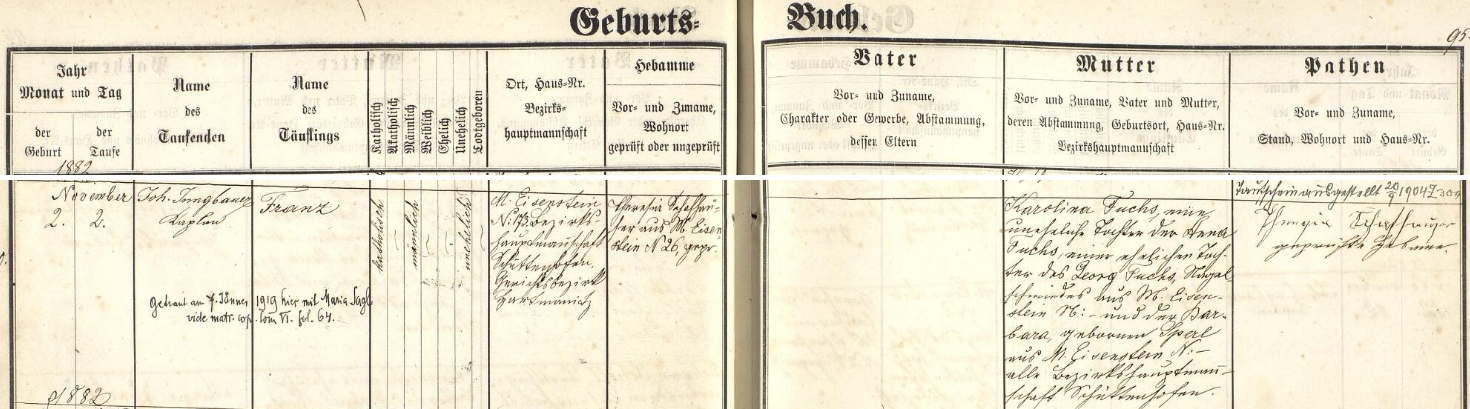 Geburts=
Buch.
95.
Jahr
Monat und Tag
der Geburt
der Taufe
Name
des
Taufenden
Name
des
Täuflings
Katholisch
Akatholisch
Männlich
Weiblich
Ehelich
Unehelich
Todtgeboren
Ort, Haus=Nr.
Bezirks=
hauptmannschaft
Hebamme
Vor= und Zuname,
Wohnort
geprüft oder ungeprüft
Vater
Vor= und Zuname,
Charakter oder Gewerbe, Abstammung,
dessen Eltern
Mutter
Vor= und Zuname, Vater und Mutter,
deren Abstammung, Geburtsort, Haus=Nr.
Bezirkshauptmannschaft
Pathen
Vor= und Zuname,
Stand, Wohnort und Haus=Nr.
1882
November
2. 2.
Joh. Jungbauer
Kaplan
Franz
katholisch
männlich
unehelich
M. Eisenstein
N: 173. Bezirks-
hauptmannschaft
Schüttenhofen,
Gerichtsbezirk
Hartmanitz
Theresia Schafhau-
ser aus M. Eisen-
stein N 26, gepr.
Karolina Fuchs, eine
uneheliche Tochter der Anna
Fuchs, einer ehelichen Toch-
ter des Georg Fuchs, Nagel
schmiedes aus M. Eisen-
stein N: - und der Bar-
bara, gebornen Sperl
aus M. Eisenstein N: -
alle Bezirkshauptman-
schaft Schüttenhofen.
Taufschein ausgestellt 20/9 1904
geprüfte Hebamme.
Getraut am 7. Jänner 1919 hier mit Maria
vide matr. cop. Tom VI. fol. 64.
1882